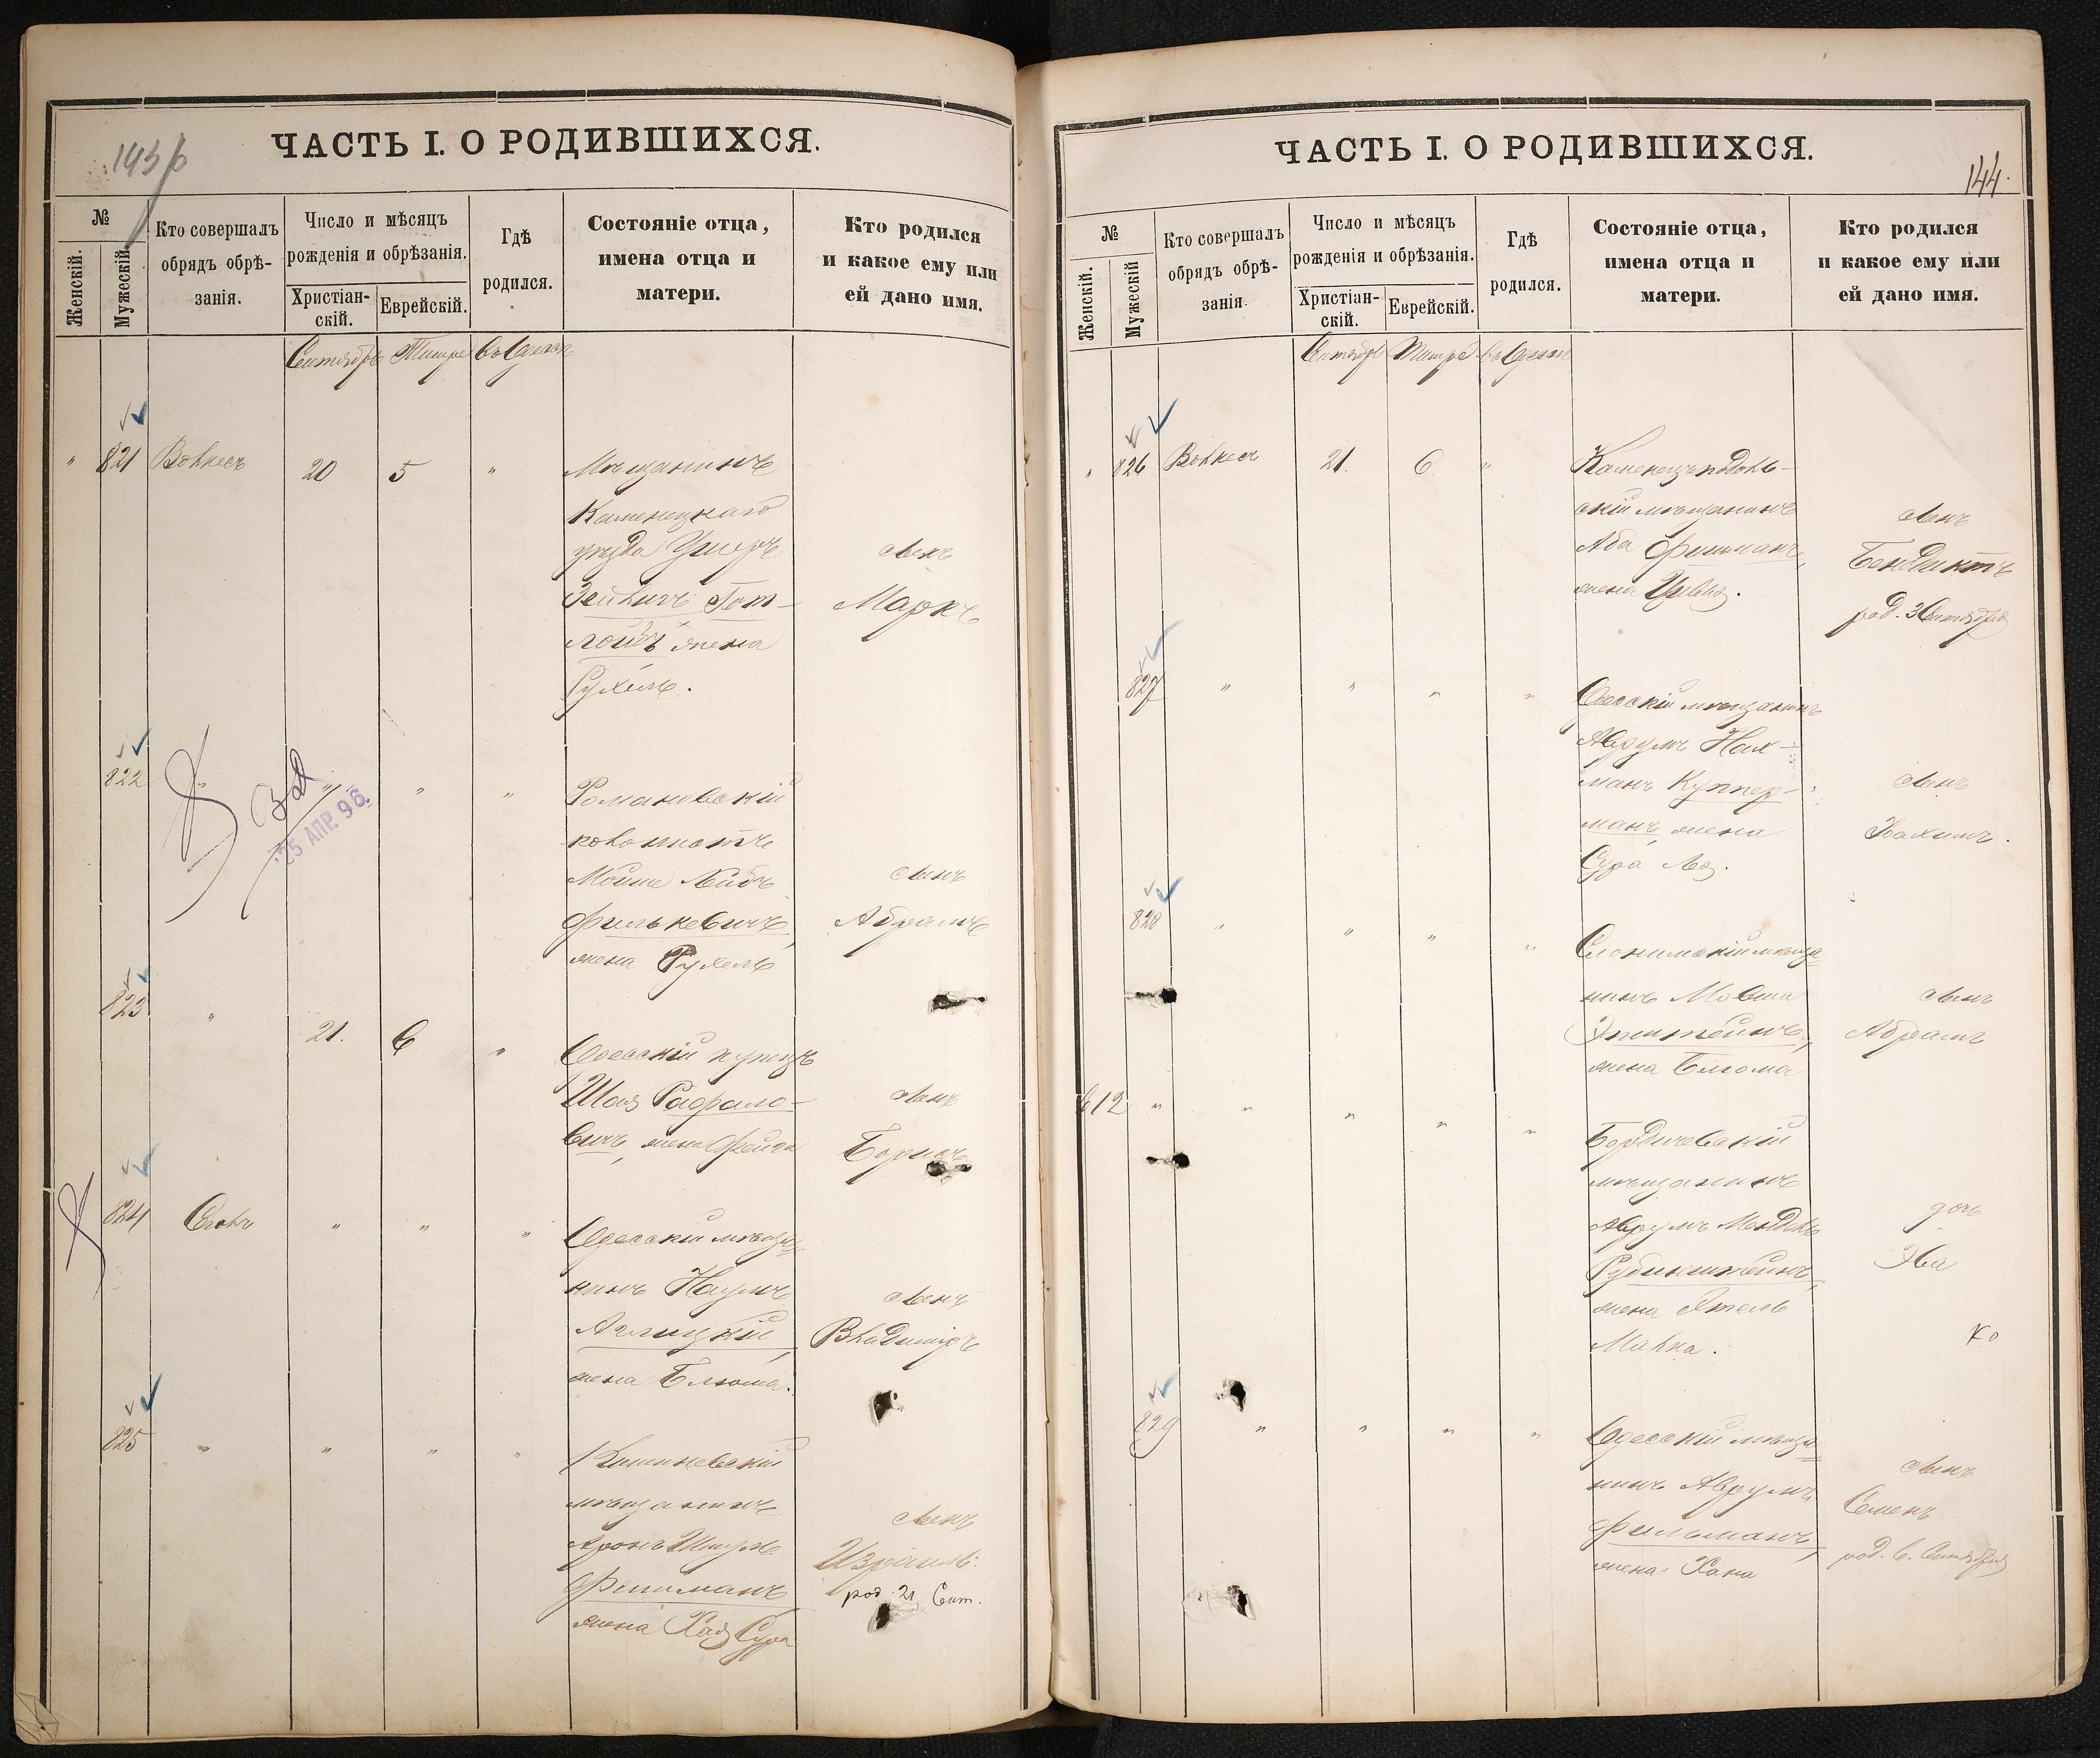 143 б
ЧАСТЬ I. О РОДИВШИХСЯ.
№
Женскій.
Мужескій.
Кто совершалъ
обрядъ обрѣ-
занія.
Число и мѣсяцъ
рожденія и обрѣзанія.
Христіан-
скій.
Еврейскій.
Гдѣ
родился.
Состояніе отца,
имена отца и
матери.
Кто родился
и какое ему или
ей дано имя.
Сентябрь Тишре въ Одессѣ
" 821
20 5 "
Мѣщанинъ
Каменецкаго
уѣзда Ушеръ
Зейликъ Гот-
лойбъ жена
Рухель.
сынъ
Маркъ
822 " " " "
25 АПР. 96.
Романовскій
колонистъ
Мойше Лейбъ
Филькевичъ,
жена Рухель
сынъ
Абрамъ
823 " 21. 6 "
Одесскій купецъ
Шая Рафало-
вичъ, жена Фейга
сынъ
Борисъ
824 " " "
Одесскій мѣща=
нинъ Наумъ
Аглицкій,
жена Блюма.
сынъ
Владиміръ
825 " " " "
Кишиневскій
мѣщанинъ
Аронъ Шмулъ
Фишманъ
жена Хая Сура
сынъ
Израиль.
род. 21 Сент.
144.
ЧАСТЬ I. О РОДИВШИХСЯ.
№
Женскій.
Мужескій
Кто совершалъ
обрядъ обрѣ-
занія.
Число и мѣсяцъ
рожденія и обрѣзанія.
Христіан-
скій.
Еврейскій.
Гдѣ
родился.
Состояніе отца,
имена отца и
матери.
Кто родился
и какое ему или
ей дано имя.
Сентябрь Тишре въ Одессѣ
" 826
21. 6 "
Каменецъподоль-
скій мѣщанинъ
Аба Фишманъ,
жена Цивья.
сынъ
Бендиктъ
род. 3 Сентября
827 " " " "
Одесскій мѣщанинъ
Аврумъ Нах-
манъ Куппер-
манъ, жена
Сура Лея.
сынъ
828 " " " "
Слонимскій мѣща=
нинъ Мовша
Эпштейнъ,
жена Блюма
сынъ
Абрамъ
612 " " " " "
Бердичевскій
мѣщанинъ
Аврумъ Мендель
Рубинштейнъ,
жена Этель
Малка.
дочь
Эва
829 " " " "
Одесскій мѣща=
нинъ Аврумъ
Фильманъ,
жена Хана
сынъ
Семенъ
род. 6. Сентября